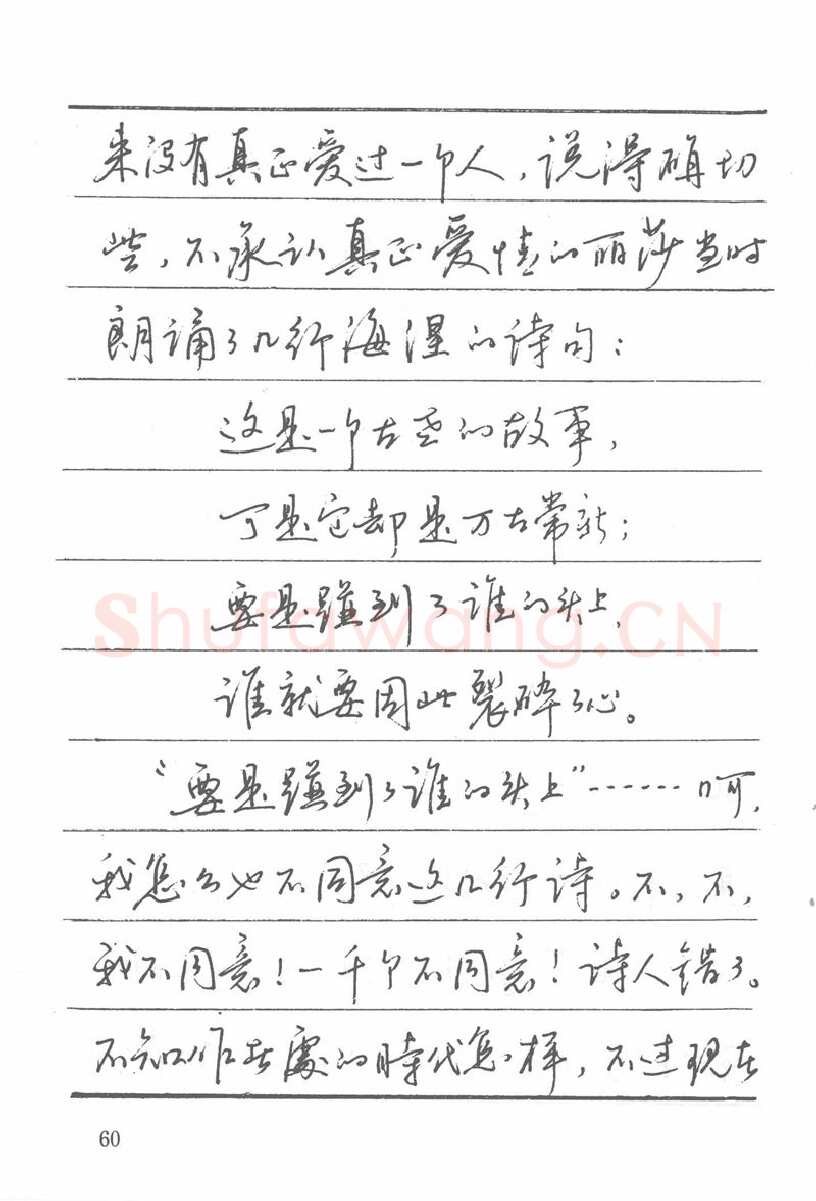 来没有真正爱过一个人，说得确切
些，不承认真正爱情的丽莎当时
朗诵了几行海涅的诗句：
这是一个古老的故事，
可是它却是万古常新；
要是碰到了谁的头上，
谁就要因此裂碎了心。
“要是碰到了谁的头上”……呵，
我怎么也不同意这几行诗。不，不，
我不同意！一千个不同意！诗人错了。
不知他所处的時代怎样，不过现在
Shufawang.CN
60